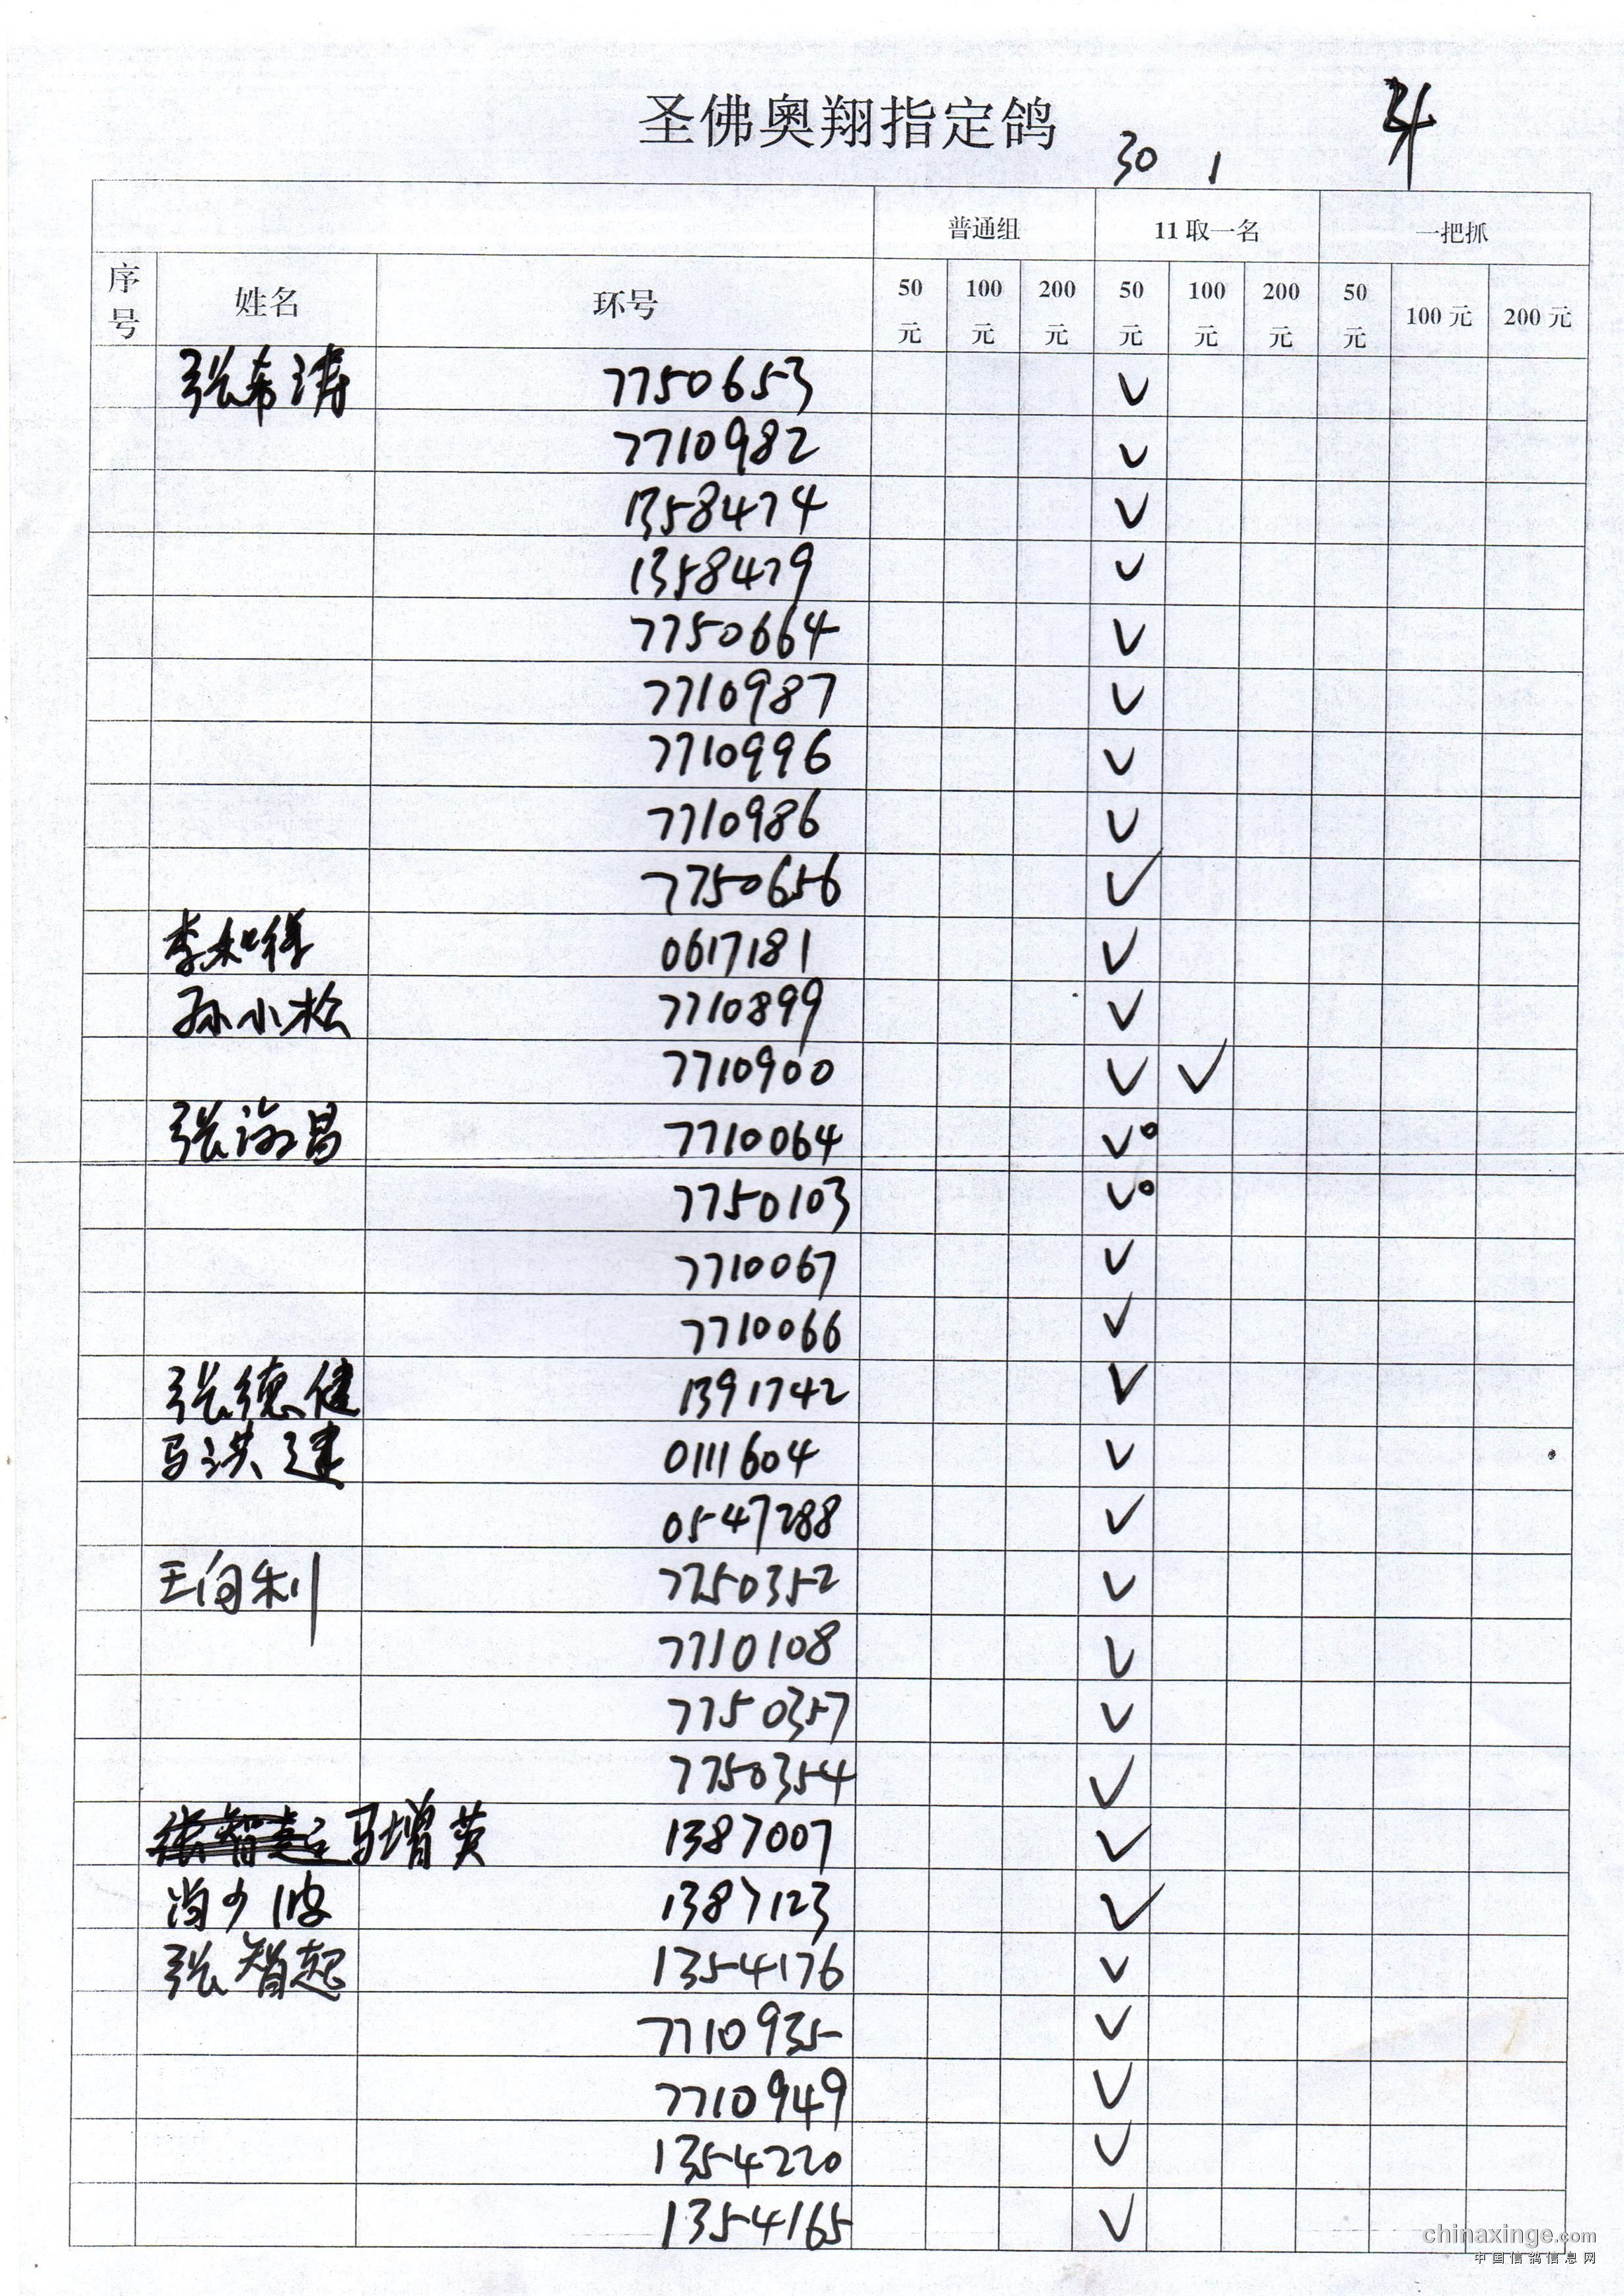 圣佛奥翔指定鸽
30 1
普通组 11取一名 一把抓
序号 姓名 环号 50元 100元 200元 50元 100元 200元 50元 100元 200元
张希涛 7750653 ✓
7710982 ✓
1358474 ✓
1358479 ✓
7750664 ✓
7710987 ✓
7710996 ✓
7710986 ✓
7750656 ✓
李 0617181 ✓
孙小松 7710899 ✓
7710900 ✓ ✓
张 昌 7710064 ✓
7750103 ✓
7710067 ✓
7710066 ✓
张德健 1391742 ✓
马洪建 0111604 ✓
0547288 ✓
王向利 7750352 ✓
7710108 ✓
7750357 ✓
7750354 ✓
马增英 1387007 ✓
少波 1387123 ✓
张智起 1354176 ✓
7710935 ✓
7710949 ✓
1354220 ✓
1354165 ✓
chinaxinge.com
中国信鸽信息网